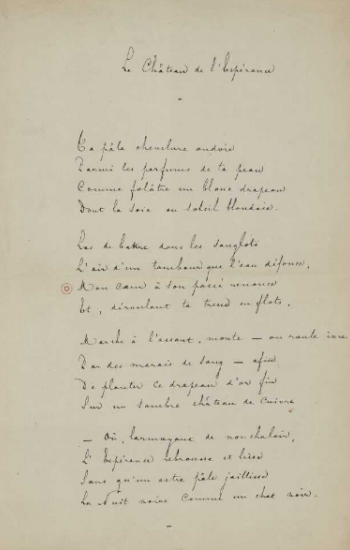 Le Château de l'Espérance
Ta pâle chevelure ondoie
Parmi les parfums de ta peau
Comme folâtre un blanc drapeau
Dont la soie au soleil blondoie.
Las de battre dans les sanglots
L'air d'un tambour que l'eau défonce,
Mon cœur à son passé renonce
Et, déroulant ta tresse en flots,
Marche à l'assaut, monte — ou roule ivre
Par des marais de sang — afin
De planter ce drapeau d'or fin
Sur un sombre château de cuivre
— Où, larmoyant de nonchaloir,
L'Espérance rebrousse et lisse
Sans qu'un astre pâle jaillisse
La Nuit noire comme un chat noir.